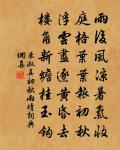 雨後風涼暑氣收
庭梧葉葉報初秋
浮雲盡逐黃昏去
樓角新蟾挂玉鈎
朱淑真初秋雨晴詞典
網喜